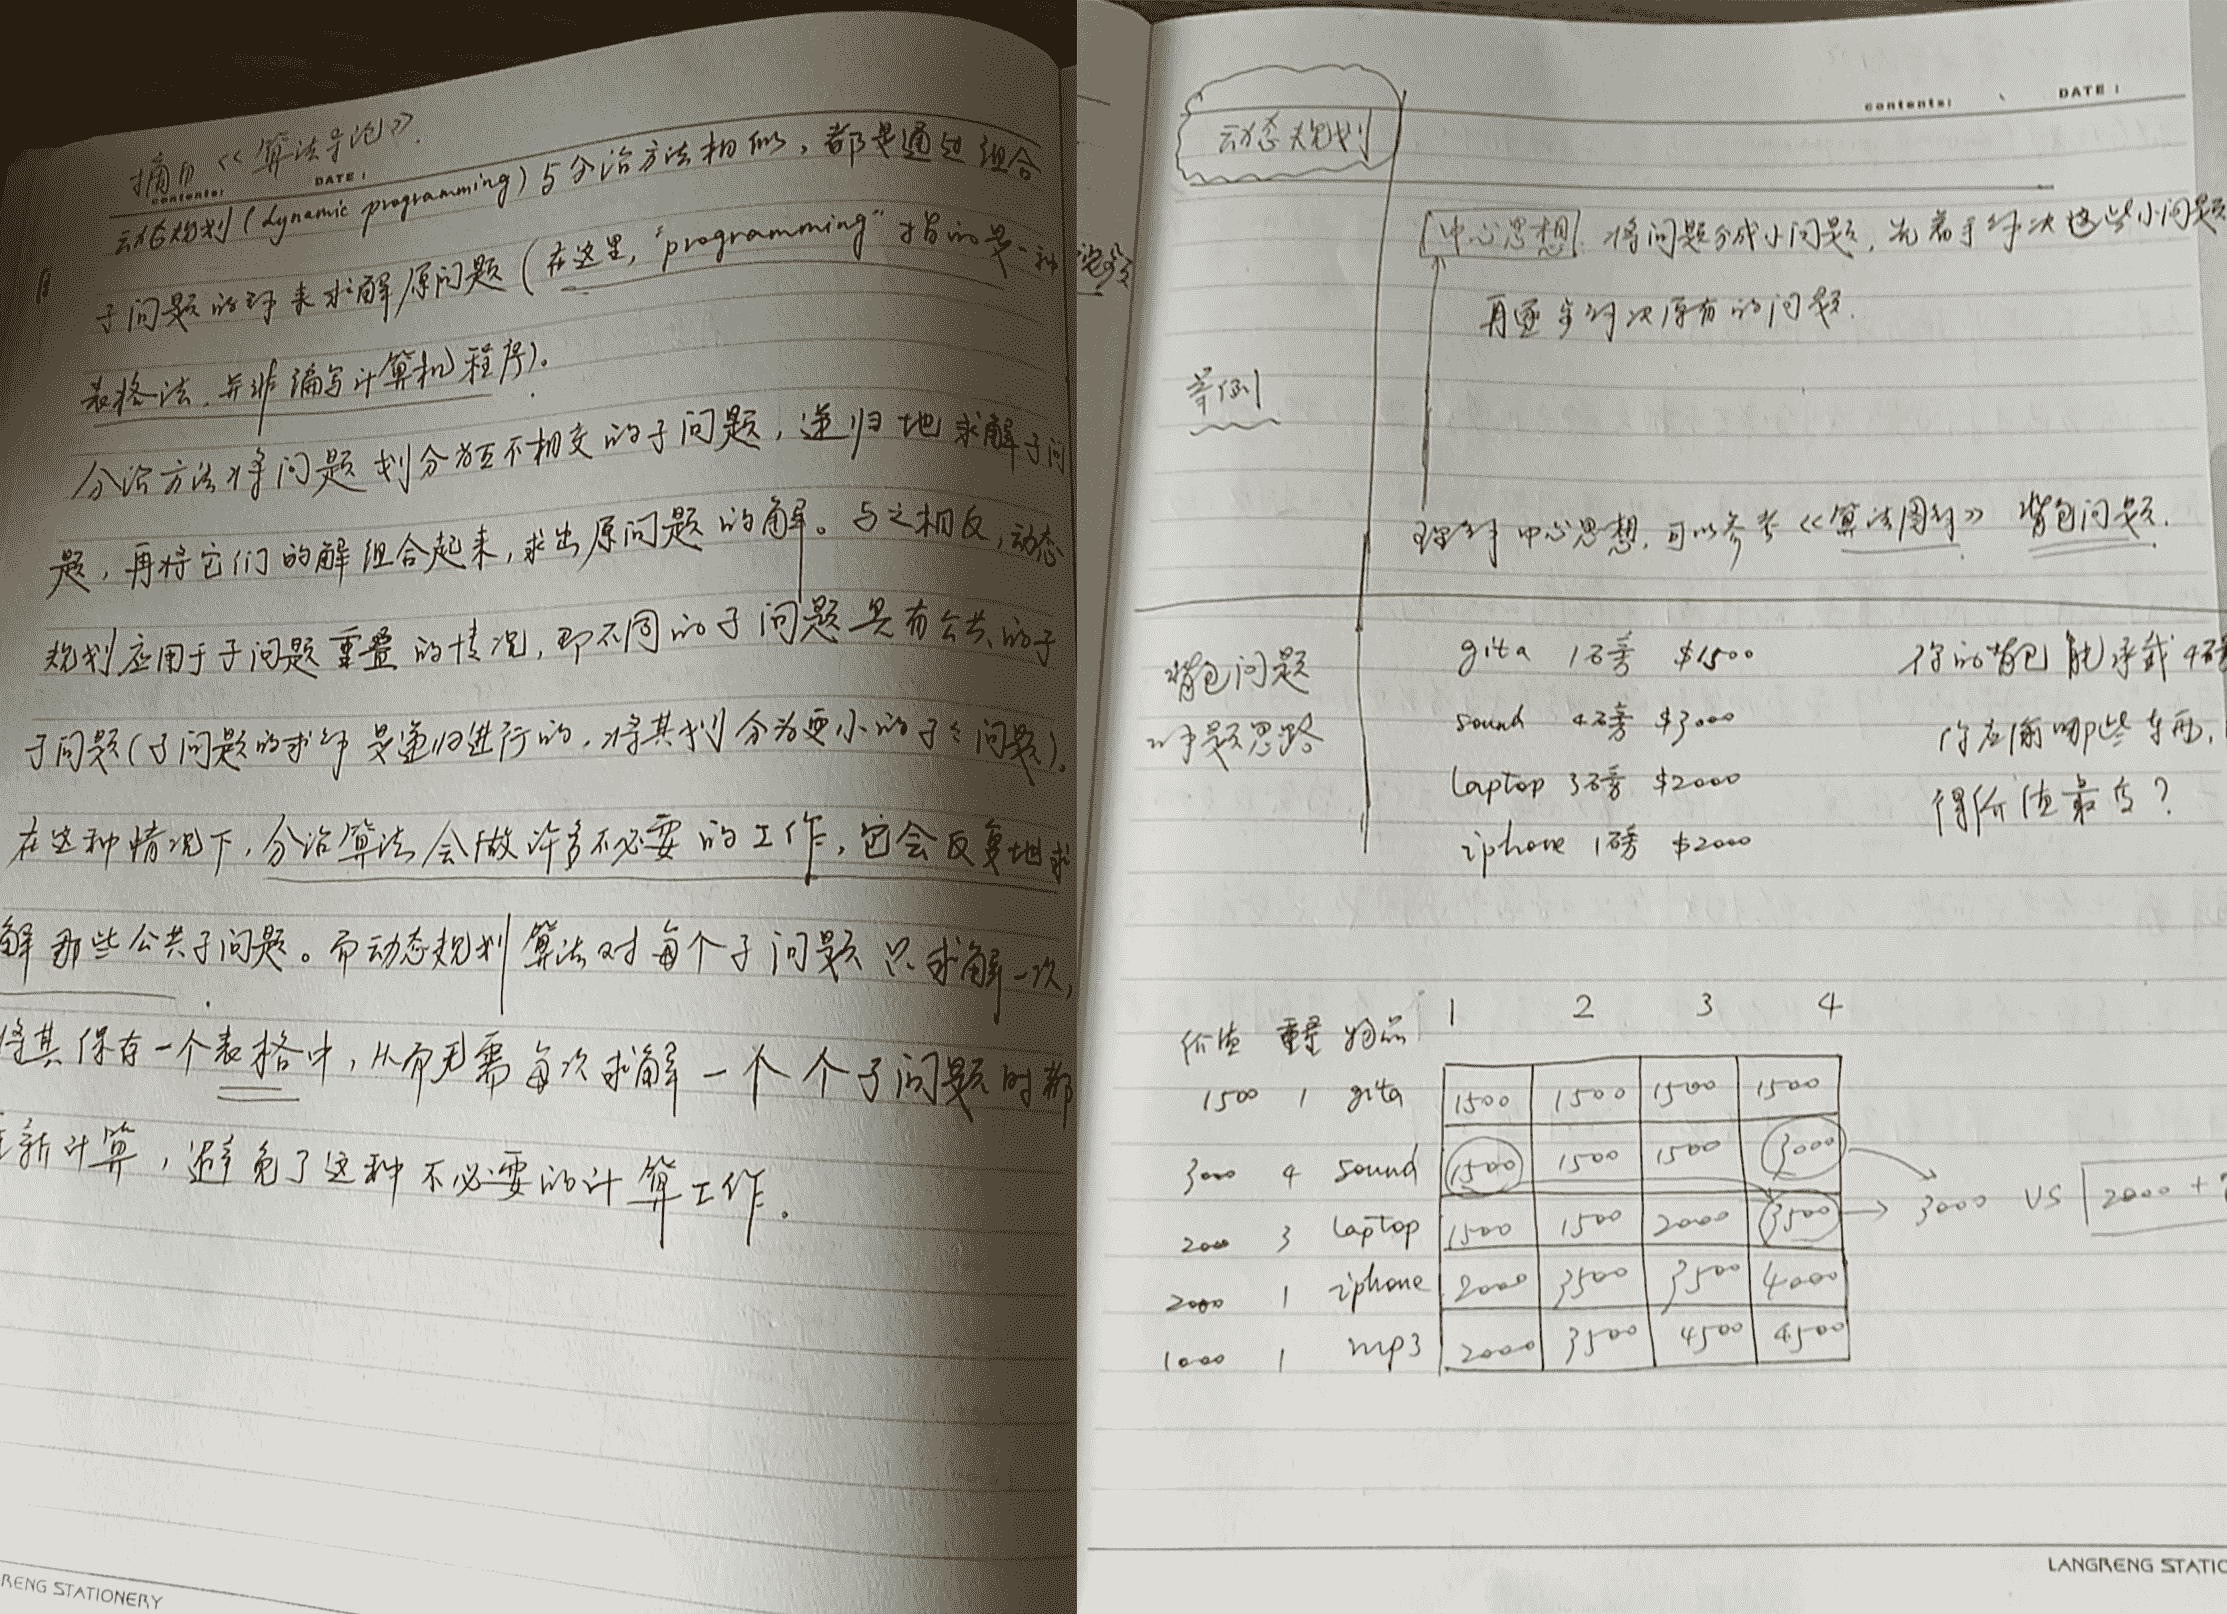 摘自《算法导论》.
contents: DATE:
动态规划(dynamic programming)与分治方法相似，都是通过组合
子问题的解来求解原问题(在这里,"programming"指的是一种
表格法,并非编写计算机程序)。
分治方法将问题划分为互不相交的子问题，递归地求解子问
题，再将它们的解组合起来,求出原问题的解。与之相反,动态
规划应用于子问题重叠的情况,即不同的子问题具有公共的子
子问题(子问题的求解是递归进行的,将其划分为更小的子子问题)。
在这种情况下,分治算法会做许多不必要的工作,它会反复地求
解那些公共子问题。而动态规划算法对每个子问题只求解一次,
将其保存一个表格中,从而无需每次求解一个个子问题时都
新计算,避免了这种不必要的计算工作。
RENG STATIONERY
contents: DATE:
动态规划
中心思想 将问题分成小问题,先着手解决这些小问题
再逐步解决原有的问题.
举例
理解中心思想,可以参考《算法图解》背包问题.
背包问题
解题思路
gita 1磅 $1500 你的背包能承载4磅
sound 4磅 $3000 你应偷哪些东西,
laptop 3磅 $2000 得价值最高?
iphone 1磅 $2000
1 2 3 4
价值 重量 物品
1500 1 gita 1500 1500 1500 1500
3000 4 sound 1500 1500 1500 3000
2000 3 laptop 1500 1500 2000 3500 → 3000 VS 2000 +
2000 1 iphone 2000 3500 3500 4000
1000 1 mp3 2000 3500 4500 4500
LANGRENG STATIO